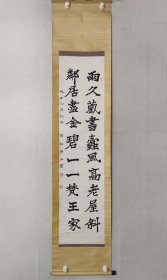 雨久藏書蠹風高老屋斜
鄰居盡金碧一一梵王家